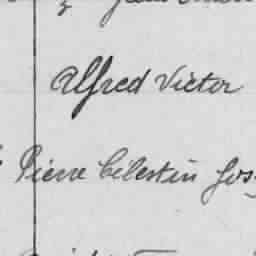 Alfred Victor
Pierre Celestin Jos